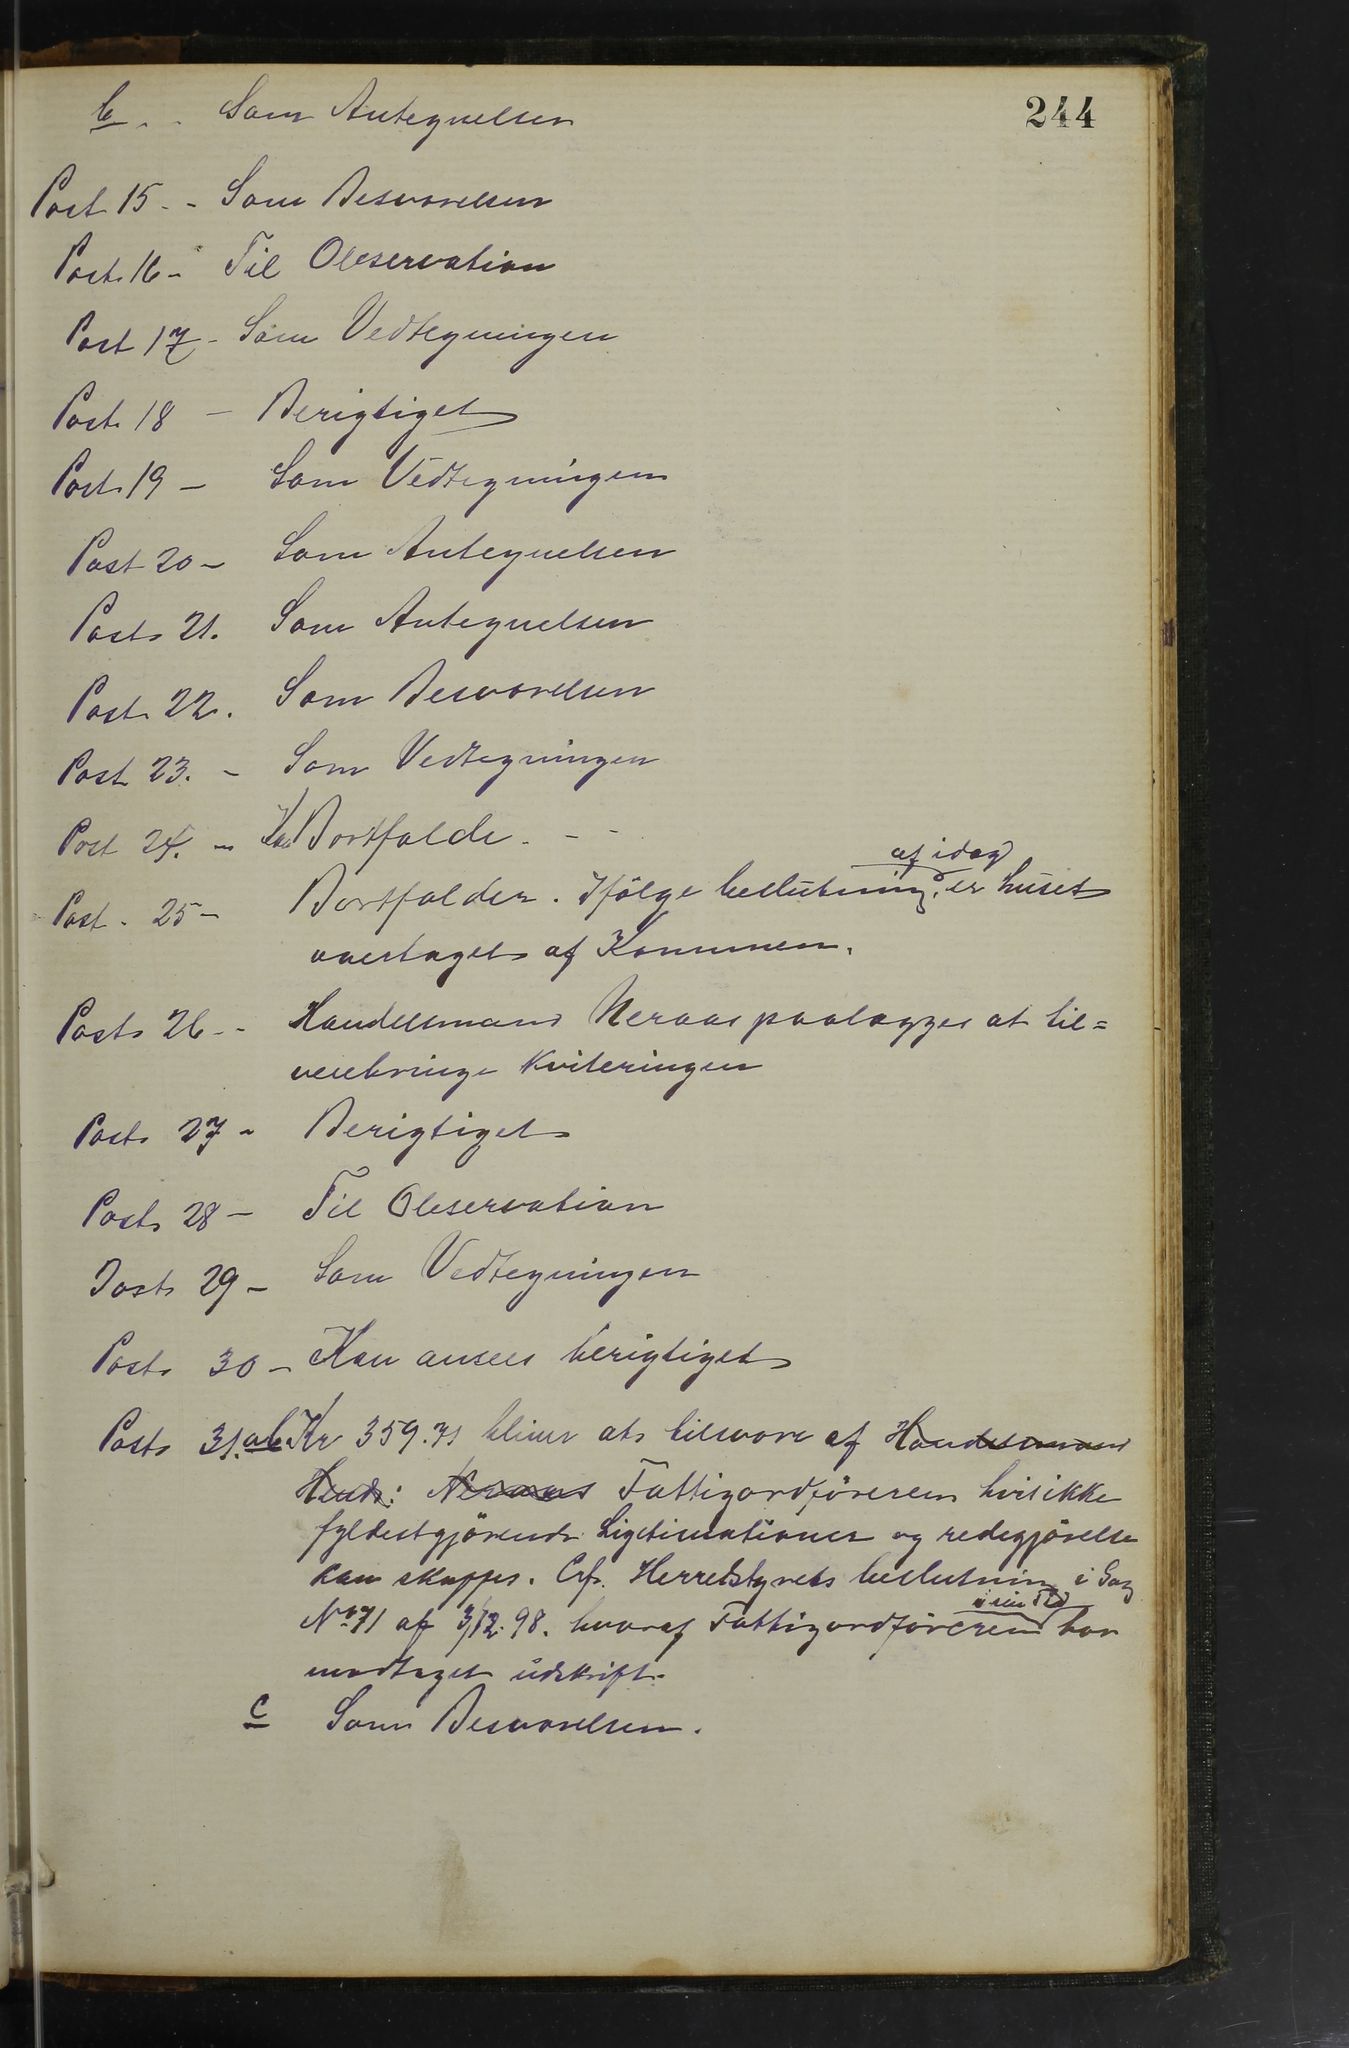 244
b. . Som Antegnelsen
Post 15 - - Som Besvarelsen
Post 16 - Til Observation
Post 17 - Som Vedtegningen
Post 18 - Berigtiget
Post 19 - Som Vedtegningen
Post 20 - Som Antegnelsen
Post 21. Som Antegnelsen
Post 22. Som Besvarelsen
Post 23. - Som Vedtegningen
Post 24. - Kan Bortfalde. - -
af idag
Post. 25 - Bortfalder. Ifölge beslutning, er huset
overtaget af Kommunen.
Post 26 - - Handelsmand Neraas paalægges at til=
veiebringe Kviteringen
Post 27 - Berigtiget
Post 28 - Til Observation
Post 29 - Som Vedtegningen
Post 30 - Kan ansees berigtiget
Post 31. ab Kr 359.71 bliver at tilsvare af Handelsmand
Neraas Fattigordföreren hvis ikke
fyldestgjörende Ligetimationer og redegjörelse
kan skaffes. Cfr. Herredstyrets beslutning i Sag
No 71 af 3/12.98. hvoraf Fattigordföreren har
modtaget udskrift.
c Som Besvarelsen.